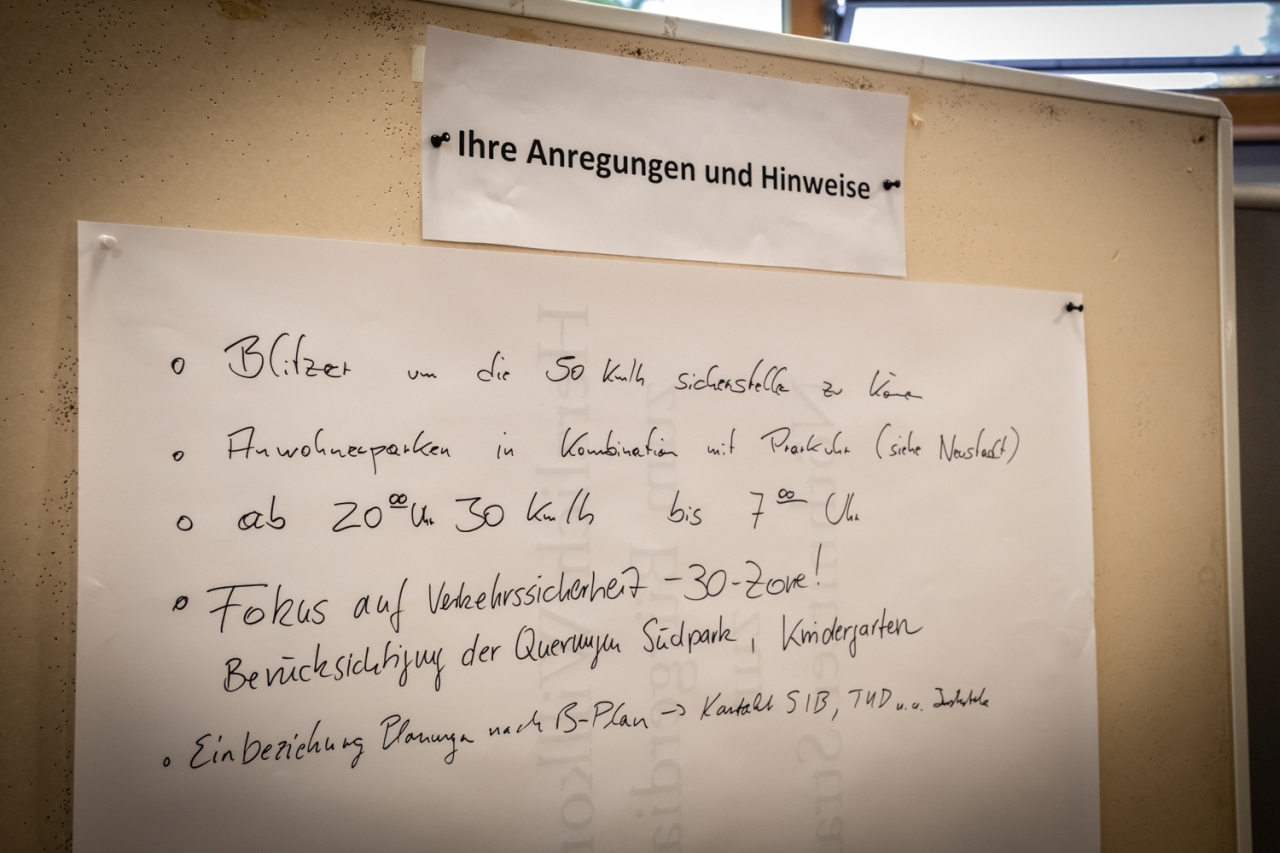 Ihre Anregungen und Hinweise
o Blitzer um die 50 km/h sicherstelle zu könne
o Anwohnerparken in Kombination mit Parkuhr (siehe Neustadt)
o ab 20⁰⁰ Uhr 30 km/h bis 7⁰⁰ Uhr
o Fokus auf Verkehrssicherheit - 30-Zone!
Berücksichtigung der Querungen Südpark, Kindergarten
o Einbeziehung Planungen nach B-Plan -> Kontakt SIB, TUD u.a.